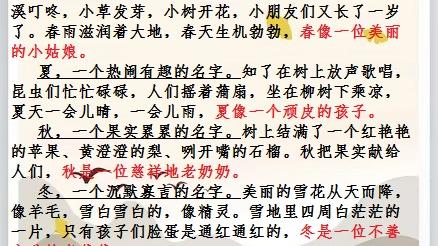 溪叮咚，小草发芽，小树开花，小朋友们又长了一岁
了。春雨滋润着大地，春天生机勃勃，春像一位美丽
的小姑娘。
夏，一个热闹有趣的名字。知了在树上放声歌唱，
昆虫们忙忙碌碌，人们摇着蒲扇，坐在柳树下乘凉，
夏天一会儿晴，一会儿雨，夏像一个顽皮的孩子。
秋，一个果实累累的名字。树上结满了一个红艳艳
的苹果、黄澄澄的梨、咧开嘴的石榴。秋把果实献给
人们，秋是一位慈祥地老奶奶。
冬，一个沉默寡言的名字。美丽的雪花从天而降，
像羊毛，雪白雪白的，像精灵。雪地里四周白茫茫的
一片，只有孩子们脸蛋是通红通红的，冬是一位不善